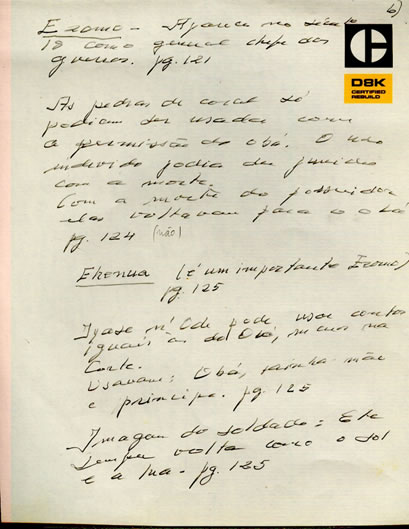 6)
Ezomo - Aparece no século
18 como general chefe dos
guerreiros. pg. 121
C
DBK
CERTIFIED
REBUILD
As pedras de coral só
podiam ser usadas com
a permissão do Obá. O uso
indevido podia ser punido
com a morte.
Com a morte do possuidor
elas voltavam para o obá
pg. 124 (não)
Ekenua (é um importante Ezomo)
pg. 125
Iyase n'Ode pode usar contas
iguais às do Obá, menos na
Corte.
Usavam: Obá, rainha-mãe
e príncipe. pg. 125
Imagem do soldado: Ele
sempre volta como o sol
e a lua. pg. 125